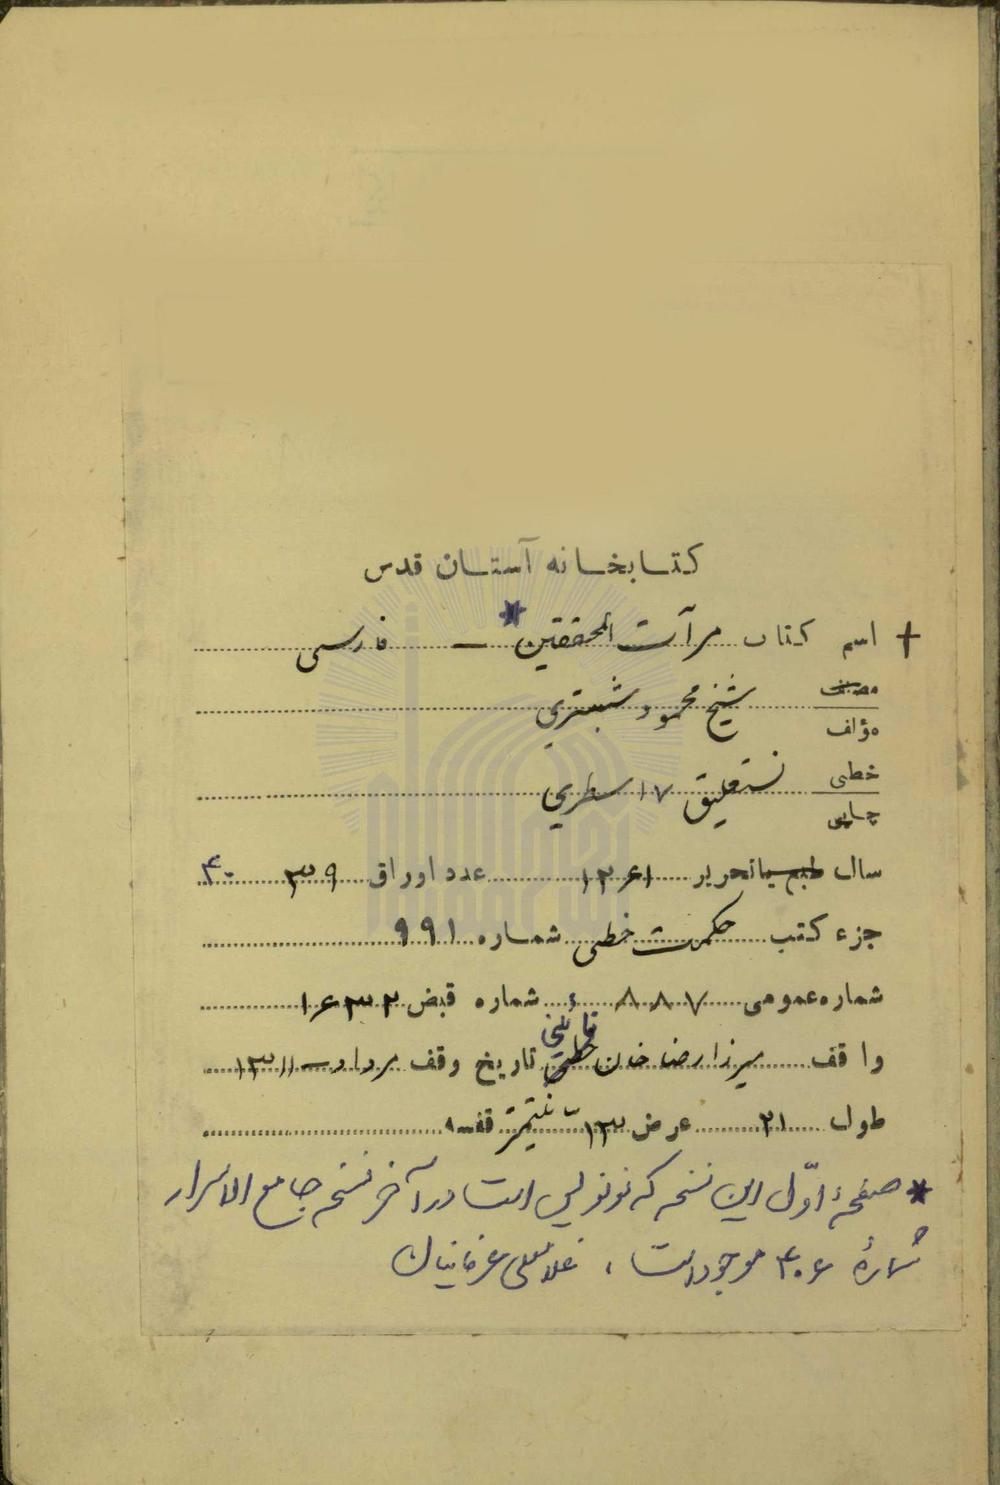 کتابخانه آستان قدس
+ اسم کتاب مرآت المحققین * — فارسی
مصنف
مؤلف
شیخ محمود شبستری
خطی
چاپی
نستعلیق ۱۷ سطری
سال طبع یا تحریر ۱۲۶۱ عدد اوراق ۳۹ ۴۰
جزء کتب حکمت خطی شماره ۹۹۱
شماره عمومی ۸۸۷ شماره قبض ۱۶۳۳۲
واقف میرزا رضا خان نائینی تاریخ وقف مرداد ۱۳۱۱
طول ۲۱ عرض ۱۳ سانتیمتر قفسه
* صفحهٔ اوّل این نسخه که نونویس است در آخر نسخه جامع الاسرار
شمارهٔ ۴۰۶ موجود است ، غلامعلی عرفانیان